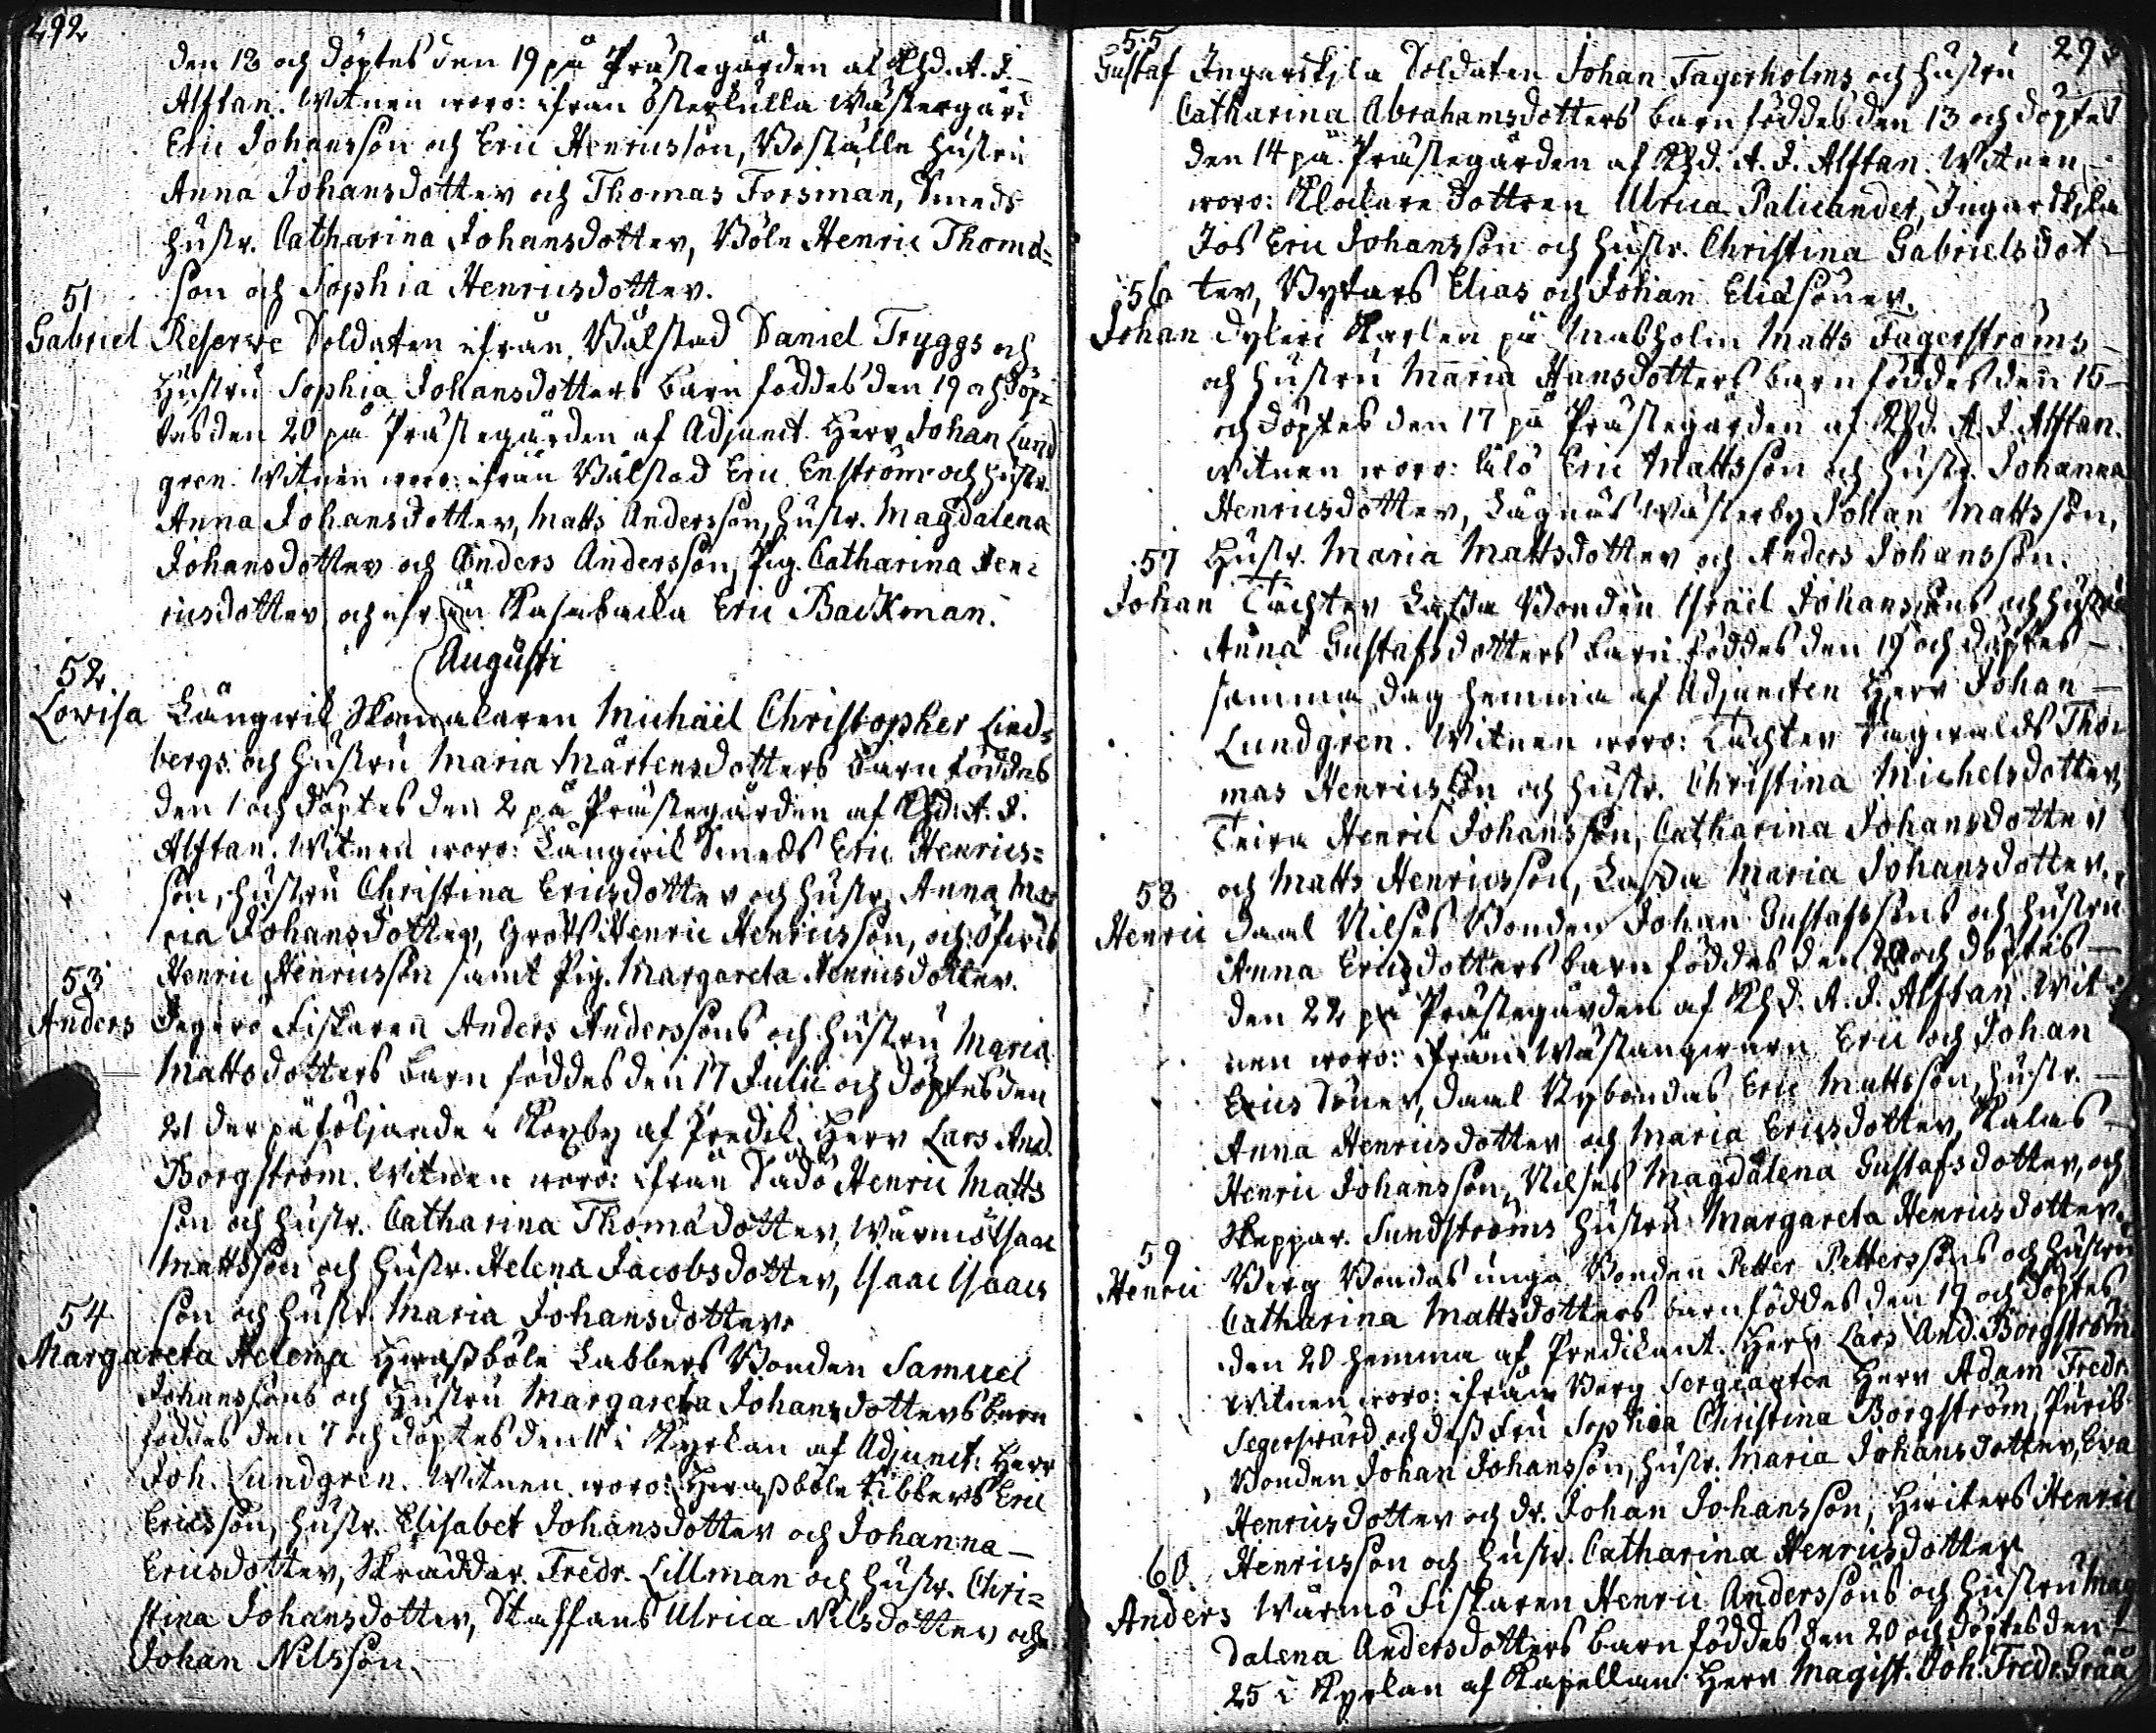 292
den 13 och döptes den 19 på Prästegården af Khd. A. J.
Alftan. Witnen woro: ifrån Österkulla Wästergård
Eric Johansson och Eric Henricsson, Boställe hustru
Anna Johansdotter och Thomas Forsman, Smeds
hustr. Catharina Johansdotter, Böle Henric Thomas=
son och Sophia Henricsdotter.
51
Gabriel Reserve Soldaten ifrån Bålstad Daniel Tryggs och
Hustru Sophia Johansdotters barn föddes den 19 och döp=
tes den 20 på Prästegården af Adjunct. Herr Johan Lund
gren. Witnen woro: ifrån Bålstad Eric Enström och hustr.
Anna Johansdotter, Matts Andersson, hustr. Magdalena
Johansdotter och Anders Andersson, Pig. Catharina Hen=
ricsdotter och ifrån Kasabacka Eric Backman.
Augusti
52
Lovisa Långwik Skomakaren Michäel Christopher Lind=
bergs och hustru Maria Mårtensdotters barn föddes
den 1 och döptes den 2 på Prästegården af Khd. A. J.
Alftan. Witnen woro: Långwik Smeds Eric Henrics=
son, hustru Christina Ericsdotter och hustr. Anna Ma=
ria Johansdotter, Henric Henricsson, och
Henric Henricsson samt Pig. Margareta Henricsdotter.
53
Anders Degerö Fiskaren Anders Anderssons och hustru Maria
Mattsdotters barn föddes den 17 Julii och döptes den
21 der påföljande i af Predik. Herr Lars And.
Borgström. Witnen woro: ifrån Dådö Henric Matts
son och hustr. Catharina Thomasdotter, Wårmö Isaac
Mattsson och hustr. Helena Jacobsdotter, Isaac Isaacs
son och hustr. Maria Johansdotter.
54
Margareta Helena Hwaßböle Labbers Bonden Samuel
Johanssons och Hustru Margareta Johansdotters barn
föddes den 7 och döptes den 11 i Kyrkan af Adjunct. Herr
Joh. Lundgren. Witnen woro: Hwaßböle Kibbers Eric
Ericsson, hustr. Elisabet Johansdotter och Johanna
Ericsdotter, Skrädder. Fredr. Lillman och hustr. Chri=
stina Johansdotter, Staffans Ulrica Nilsdotter och
Johan Nilsson.
293
55
Gustaf Ingarskila Soldaten Johan Fagerholms och hustru
Catharina Abrahamsdotters barn föddes den 13 och döptes
den 14 på Prästegården af Khd. A. J. Alftan. Witnen
woro: Klockare dottren Ulrica Palicander, Ingarskila
Jos Eric Johansson och hustr. Christina Gabrielsdot=
ter, Elias och Johan Eliasöner.
56
Johan på Matts Fagerströms
och hustru Maria Hansdotters barn föddes den 15
och döptes den 17 på Prästegården af Khd. A. J. Alftan.
Witnen woro: Elö Eric Mattsson och hustr. Johanna
Henricsdotter, Lågnäs Wästerby Johan Mattsson,
Hustr. Maria Mattsdotter och Anders Johansson.
57
Johan Täckter Lasda Bonden Israel Johanssons och hustru
Anna Gustafsdotters barn föddes den 19 och döptes
samma dag hemma af Adjuncten Herr Johan
Lundgren. Witnen woro: Täckter Thom
mas Henricsson och hustr. Christina Michelsdotter,
Teira Henric Johansson, Catharina Johansdotter
och Matts Henricsson, Lasda Maria Johansdotter.
58
Henric daal Nilses Bonden Johan Gustafssons och hustru
Anna Ericsdotters barn föddes den 20 och döptes
den 22 på Prästegården af Khd. A. J. Alftan. Wit=
nen woro: ifrån Wästangwarn Eric och Johan
Erics Söner, daal Nybondas Eric Mattsson, hustr.
Anna Henricsdotter och Maria Ericsdotter, Kalas
Henric Johansson, Nilses Magdalena Gustafsdotter, och
Skeppar. Sundströms hustru Margareta Henricsdotter.
59
Henric Berg Bondas unga Bonden Petter Petterssons och hustru
Catharina Mattsdotters barn föddes den 19 och döptes
den 20 hemma af Predikant. Herr Lars And. Borgström.
Witnen woro: ifrån Berg Sergeanten Herr Adam Fredr.
Segerswärd och deß Fru Sophia Christina Borgström, Puris
Bonden Johan Johansson, hustr. Maria Johansdotter, Eva
Henricsdotter och dr. Johan Johansson, Henric
Henricsson och hustr. Catharina Henricsdotter.
60
Anders Wårmö Fiskaren Henric Anderssons och hustru Mag
dalena Andersdotters barn föddes den 20 och döptes den
25 i Kyrkan af Kapellan Herr Magist. Joh. Fredr. Gråå